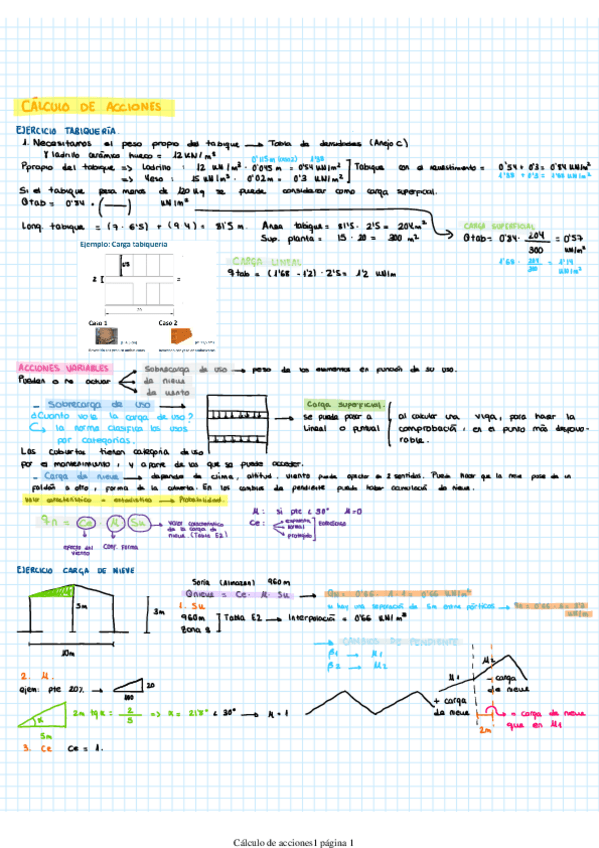 CÁLCULO DE ACCIONES
EJERCICIO TABIQUERÍA.
1. Necesitamos el peso propio del tabique → Tabla de densidades (Anejo C)
γ ladrillo cerámico hueco = 12 kN/m³
0'115m (1/2 pie) 1'38
Ppropio del tabique => Ladrillo: 12 kN/m³ · 0'045 m = 0'54 kN/m² ] Tabique con el revestimiento = 0'54 + 0'3 = 0'84 kN/m²
=> Yeso: 15 kN/m³ · 0'02m = 0'3 kN/m²
1'38 + 0'3 = 1'68 kN/m²
Si el tabique pesa menos de 120 kg se puede considerar como carga superficial.
Qtab = 0'84 · (—) kN/m²
Long. tabique = (7 · 6'5) + (9 · 4) = 81'5 m. Area tabique = 81'5 · 2'5 = 204 m²
Sup. planta = 15 · 20 = 300 m²
CARGA SUPERFICIAL
Qtab = 0'84 · 204/300 = 0'57 kN/m²
1'68 · 204/300 = 1'14 kN/m²
Ejemplo: Carga tabiquería
CARGA LINEAL
qtab = (1'68 - 1'2) · 2'5 = 1'2 kN/m
Caso 1
Caso 2
ACCIONES VARIABLES
Pueden o no actuar
Sobrecarga de uso → peso de los elementos en función de su uso.
de nieve
de viento
- Sobrecarga de uso
¿Cuánto vale la carga de uso?
la norma clasifica los usos
por categorías.
Las cubiertas tienen categoría de uso
por el mantenimiento, y aparte de las que se puede acceder.
Carga superficial.
se puede pasar a
Lineal o puntual
al calcular una viga, para hacer la
comprobación, en el punto más desfavo-
rable.
- Carga de nieve → depende de clima, altitud. viento puede afectar en 2 sentidos. Puede hacer que la nieve pase de un
faldón a otro, forma de la cubierta. En los cambios de pendiente puede haber acumulación de nieve.
Valor característico = estadística → Probabilidad.
qn = Ce · μ · Sk
Valor característico
de la carga de
nieve. (Tabla E2)
efecto del
viento
Coef. forma
μ: si pte < 30° μ=0
Ce:
expuesta
normal
protegido
Entorno
EJERCICIO CARGA DE NIEVE
5m
3m
10m
Soria (Almazán) 960 m
Qnieve = Ce · μ · Sk
Qn = 0'66 · 1 · 1 = 0'66 kN/m²
1. Sk
960m
Zona 3
Tabla E2 → Interpolación = 0'66 kN/m²
si hay una separación de 5m entre pórticos →
CAMBIO DE PENDIENTE
β1 → μ1
β2 → μ2
2. μ
ejem: pte 20% →
20
100
2m
5m
tg α = 2/5 => α = 21'8° < 30° → μ = 1
3. Ce Ce = 1.
μ1
μ2
+ carga
de nieve
- carga
de nieve
2m
= carga de nieve
que en μ1
Cálculo de acciones1 página 1